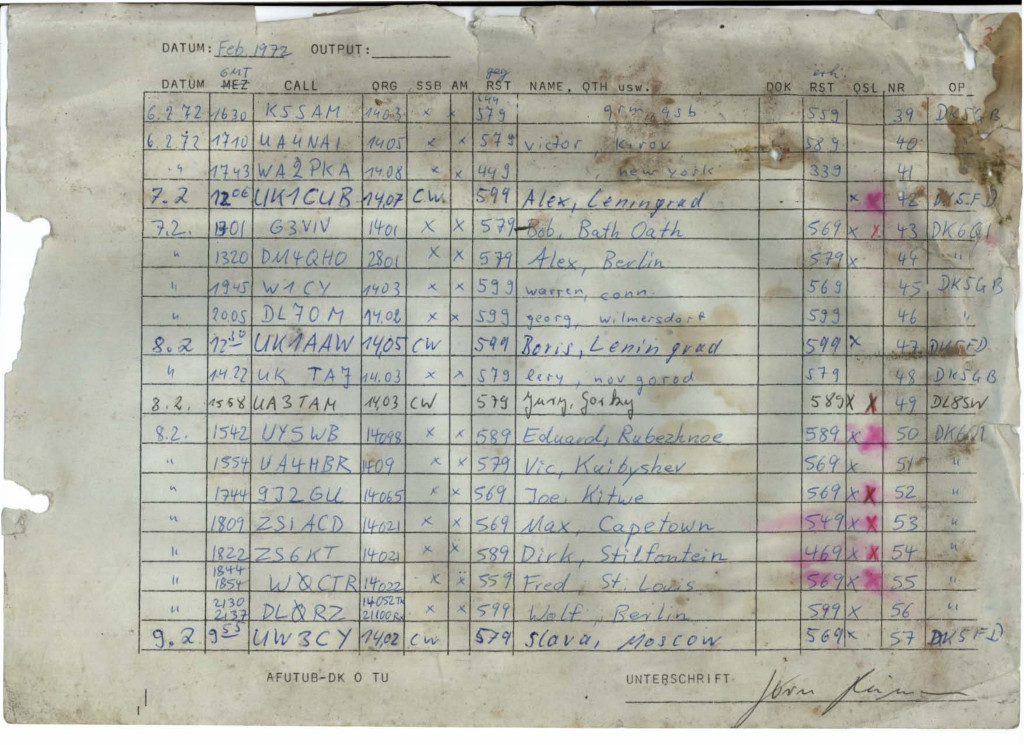 DATUM: Feb. 1972 OUTPUT:
GMT geg erh
DATUM MEZ CALL QRG SSB AM RST NAME, QTH usw. DOK RST QSL NR OP
6.2.72 1630 K5SAM 1403 x x 579 559 39 DK5GB
6.2.72 1710 UA4NAI 1405 x x 579 victor, kirov 589 40
" 1743 WA2PKA 14.08 x x 449 , new york 339 41
7.2 12 06 UK1CUB 14,07 CW. 599 Alex, Leningrad x x 42 DK5FD
7.2. 1301 G3VIV 1401 x x 579 Bob, Bath Oath 569 x x 43 DK6QI
" 1320 DM4QHO 2801 x x 579 Alex, Berlin 579 x 44 "
" 1945 W1CY 1403 x x 599 warren, conn. 569 45 DK5GB
" 2005 DL7OM 14.02 x x 599 georg, wilmersdorf 599 46 "
8.2 12 50 UK1AAW 14,05 CW 599 Boris, Leningrad 599 x 47 DK5FD
" 1422 UK TAJ 14.03 x x 579 novgorod 579 48 DK5GB
8.2. 1558 UA3TAM 14,03 CW 579 Jury, Gorky 589 x x 49 DL8SW
8.2. 1542 UY5WB 14098 x x 589 Eduard, Rubezhnoe 589 x x 50 DK6QI
" 1554 UA4HBR 1409 x x 579 Vic, Kuibyshev 569 x 51 "
" 1744 9J2GU 14065 x x 569 Joe, Kitwe 569 x x 52 "
" 1809 ZS1ACD 14021 x x 569 Max, Capetown 549 x x 53 "
" 1822 ZS6KT 14021 x x 589 Dirk, Stilfontein 469 x x 54 "
" 1844 1854 WØCTR 14022 x x 559 Fred, St. Louis 569 x x 55 "
" 2130 2137 DLØRZ 14052 21100 x x 599 Wolf, Berlin 599 x 56 "
9.2 9 53 UW3CY 14,02 CW 579 Slava, Moscow 569 x 57 DK5FD
AFUTUB-DK 0 TU UNTERSCHRIFT